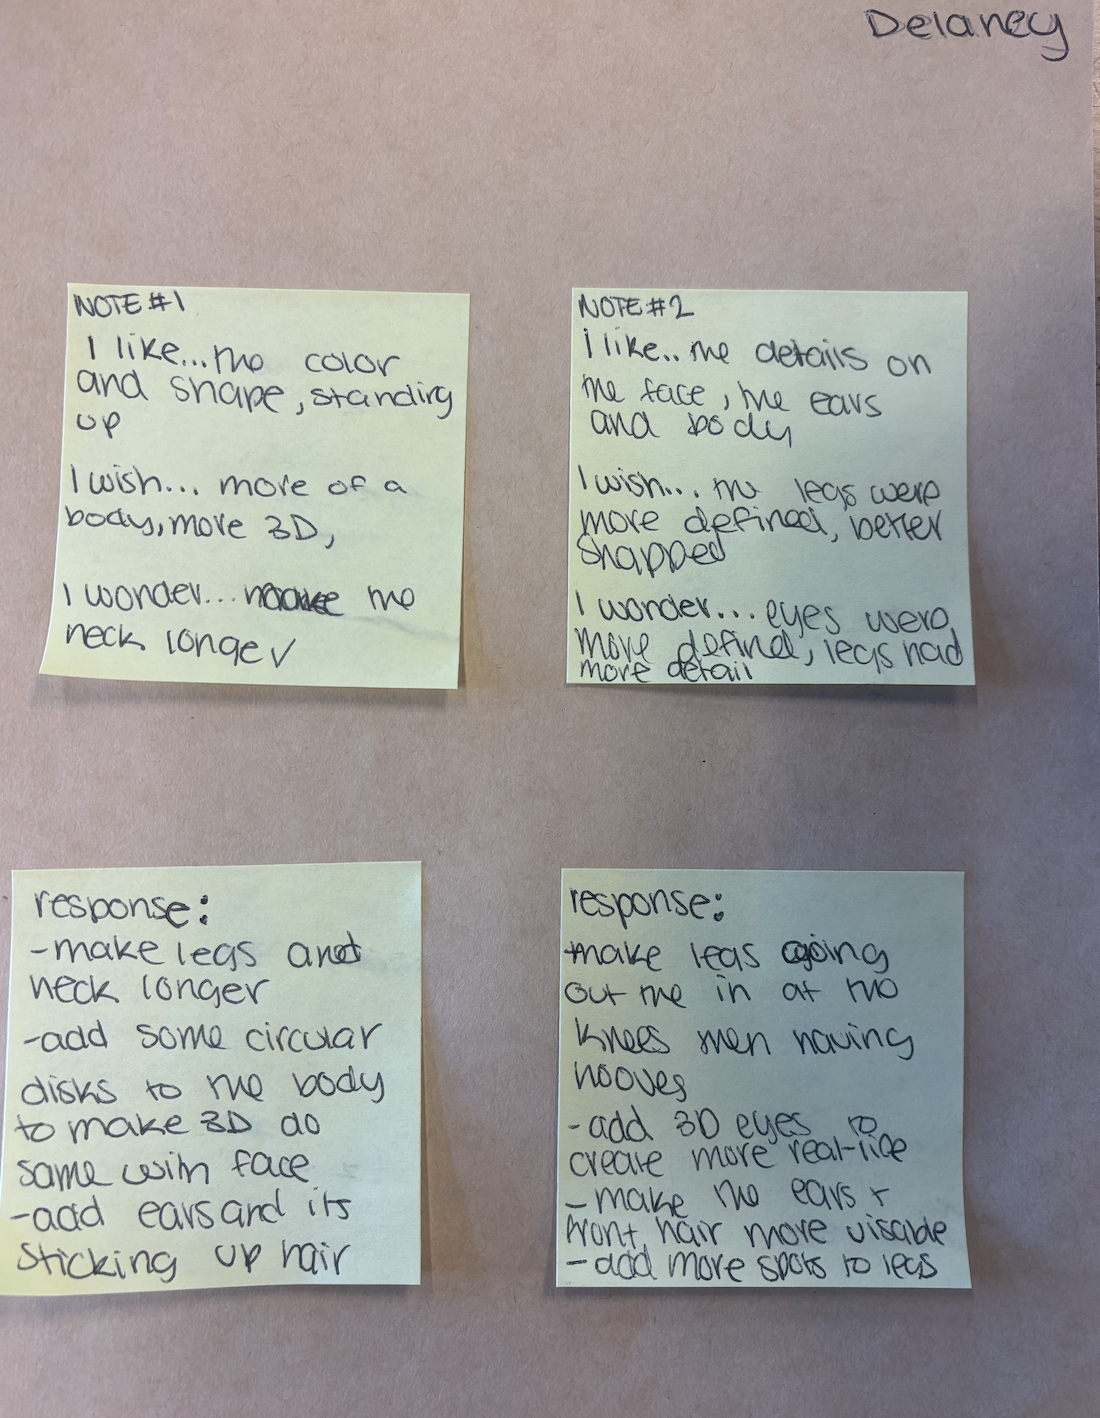 Delaney
NOTE #1
I like... the color
and shape, standing
up
I wish... more of a
body, more 3D,
I wonder... make the
neck longer
NOTE #2
I like.. the details on
the face, the ears
and body
I wish... the legs were
more defined, better
shapped
I wonder... eyes were
more defined, legs had
more detail
response:
-make legs and
neck longer
-add some circular
disks to the body
to make 3D do
same with face
-add ears and its
sticking up hair
response:
-make legs going
out the in at the
knees then having
hooves
-add 3D eyes to
create more real-life
-make the ears +
front hair more visable
-add more spots to legs